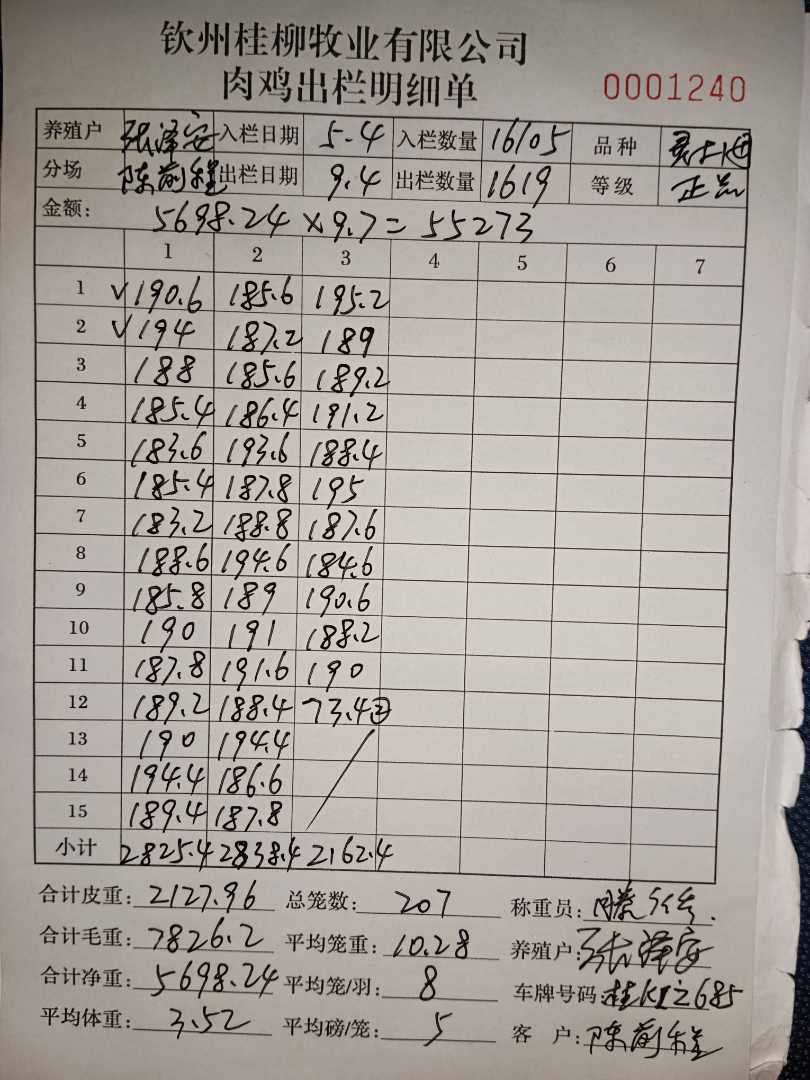 钦州桂柳牧业有限公司
肉鸡出栏明细单 0001240
养殖户 张泽安 入栏日期 5.4 入栏数量 16105 品种
分场 陈前程 出栏日期 9.4 出栏数量 1619 等级 正品
金额: 5698.24×9.7=55273
1 2 3 4 5 6 7
1 √190.6 185.6 195.2
2 √194 187.2 189
3 188 185.6 189.2
4 185.4 186.4 191.2
5 183.6 193.6 188.4
6 185.4 187.8 195
7 183.2 188.8 187.6
8 188.6 194.6 184.6
9 185.8 189 190.6
10 190 191 188.2
11 187.8 191.6 190
12 189.2 188.4 73.4
13 190 194.4
14 194.4 186.6
15 189.4 187.8
小计 2825.4 2838.4 2162.4
合计皮重: 2127.96 总笼数: 207 称重员:
合计毛重: 7826.2 平均笼重: 10.28 养殖户: 张泽安
合计净重: 5698.24 平均笼/羽: 8 车牌号码:
平均体重: 3.52 平均磅/笼: 5 客 户: 陈前程